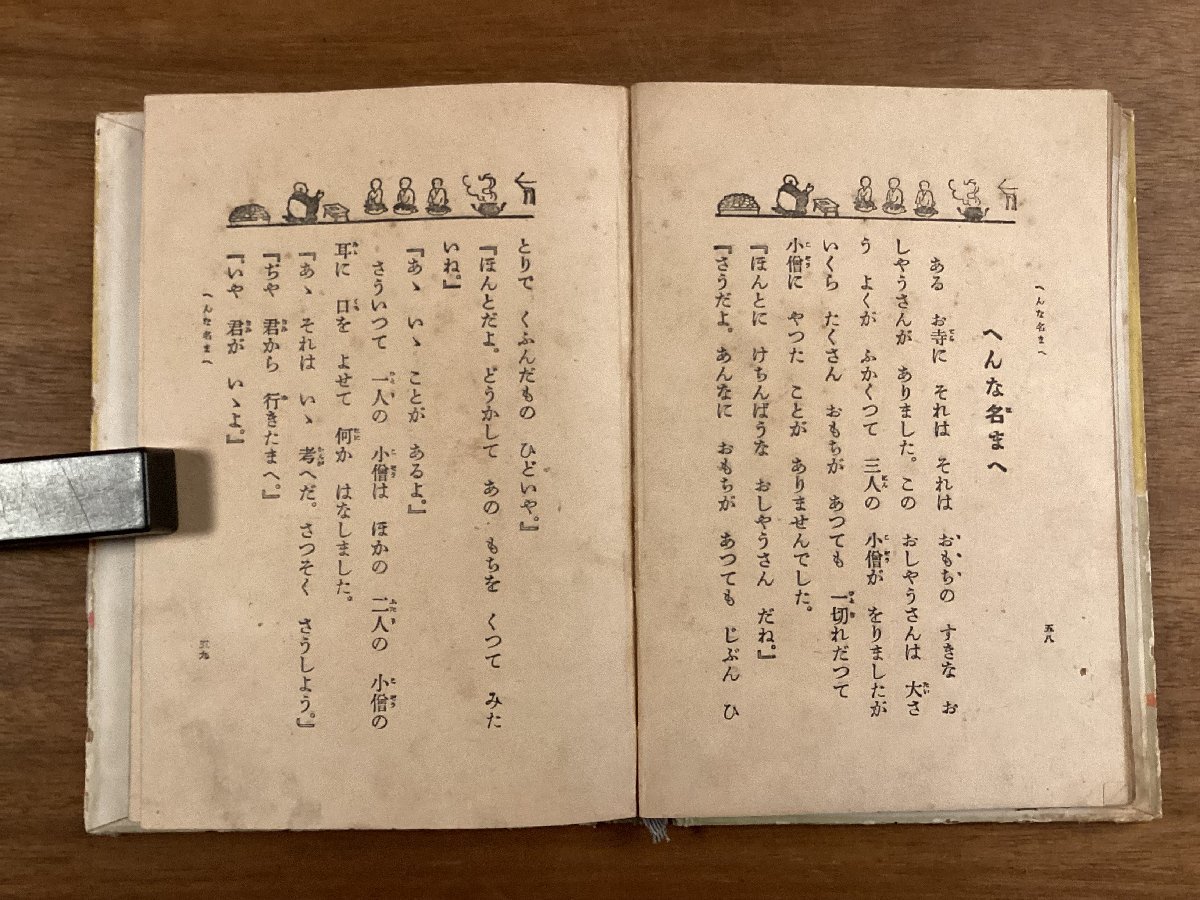 へんな名まへ
五八
へんな名まへ
ある お寺に それは それは おもちの すきな お
しやうさんが ありました。この おしやうさんは 大さ
う よくが ふかくつて 三人の 小僧が をりましたが
いくら たくさん おもちが あつても 一切れだつて
小僧に やつた ことが ありませんでした。
『ほんとに けちんばうな おしやうさん だね。』
『さうだよ。あんなに おもちが あつても じぶん ひ
とりで くふんだもの ひどいや。』
『ほんとだよ。どうかして あの もちを くつて みた
いね。』
『あゝ いゝ ことが あるよ。』
さういつて 一人の 小僧は ほかの 二人の 小僧の
耳に 口を よせて 何か はなしました。
『あゝ それは いゝ 考へだ。さつそく さうしよう。』
『ぢや 君から 行きたまへ。』
『いや 君が いゝよ。』
へんな名まへ
五九